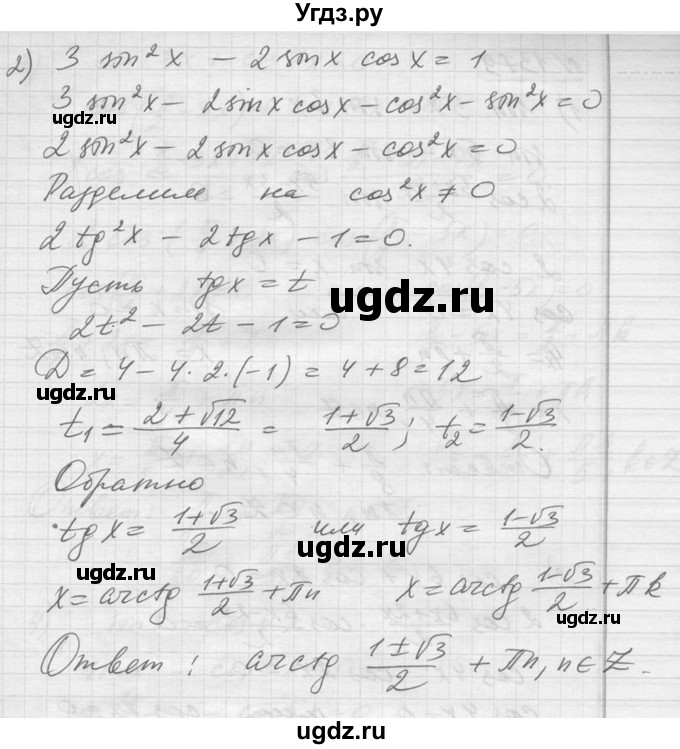 Угдз.ру
2) 3 sin²x − 2 sinx cosx = 1
3 sin²x − 2sinx cosx − cos²x − sin²x = 0
ugdz.ru ugdz.ru
2 sin²x − 2 sinx cosx − cos²x = 0
Разделим на cos²x ≠ 0
2 tg²x − 2tgx − 1 = 0.
Пусть tgx = t
ugdz.ru
2t² − 2t − 1 = 0
D = 4 − 4·2·(−1) = 4 + 8 = 12
ugdz.ru ugdz.ru
t₁ = (2+√12)/4 = (1+√3)/2; t₂ = (1−√3)/2.
Обратно
tgx = (1+√3)/2 или tgx = (1−√3)/2
ugdz.ru
x = arctg (1+√3)/2 + πn x = arctg (1−√3)/2 + πk
ugdz.ru ugdz.ru
Ответ: arctg (1±√3)/2 + πn, n∈Z.
ugdz.ru ugdz.ru